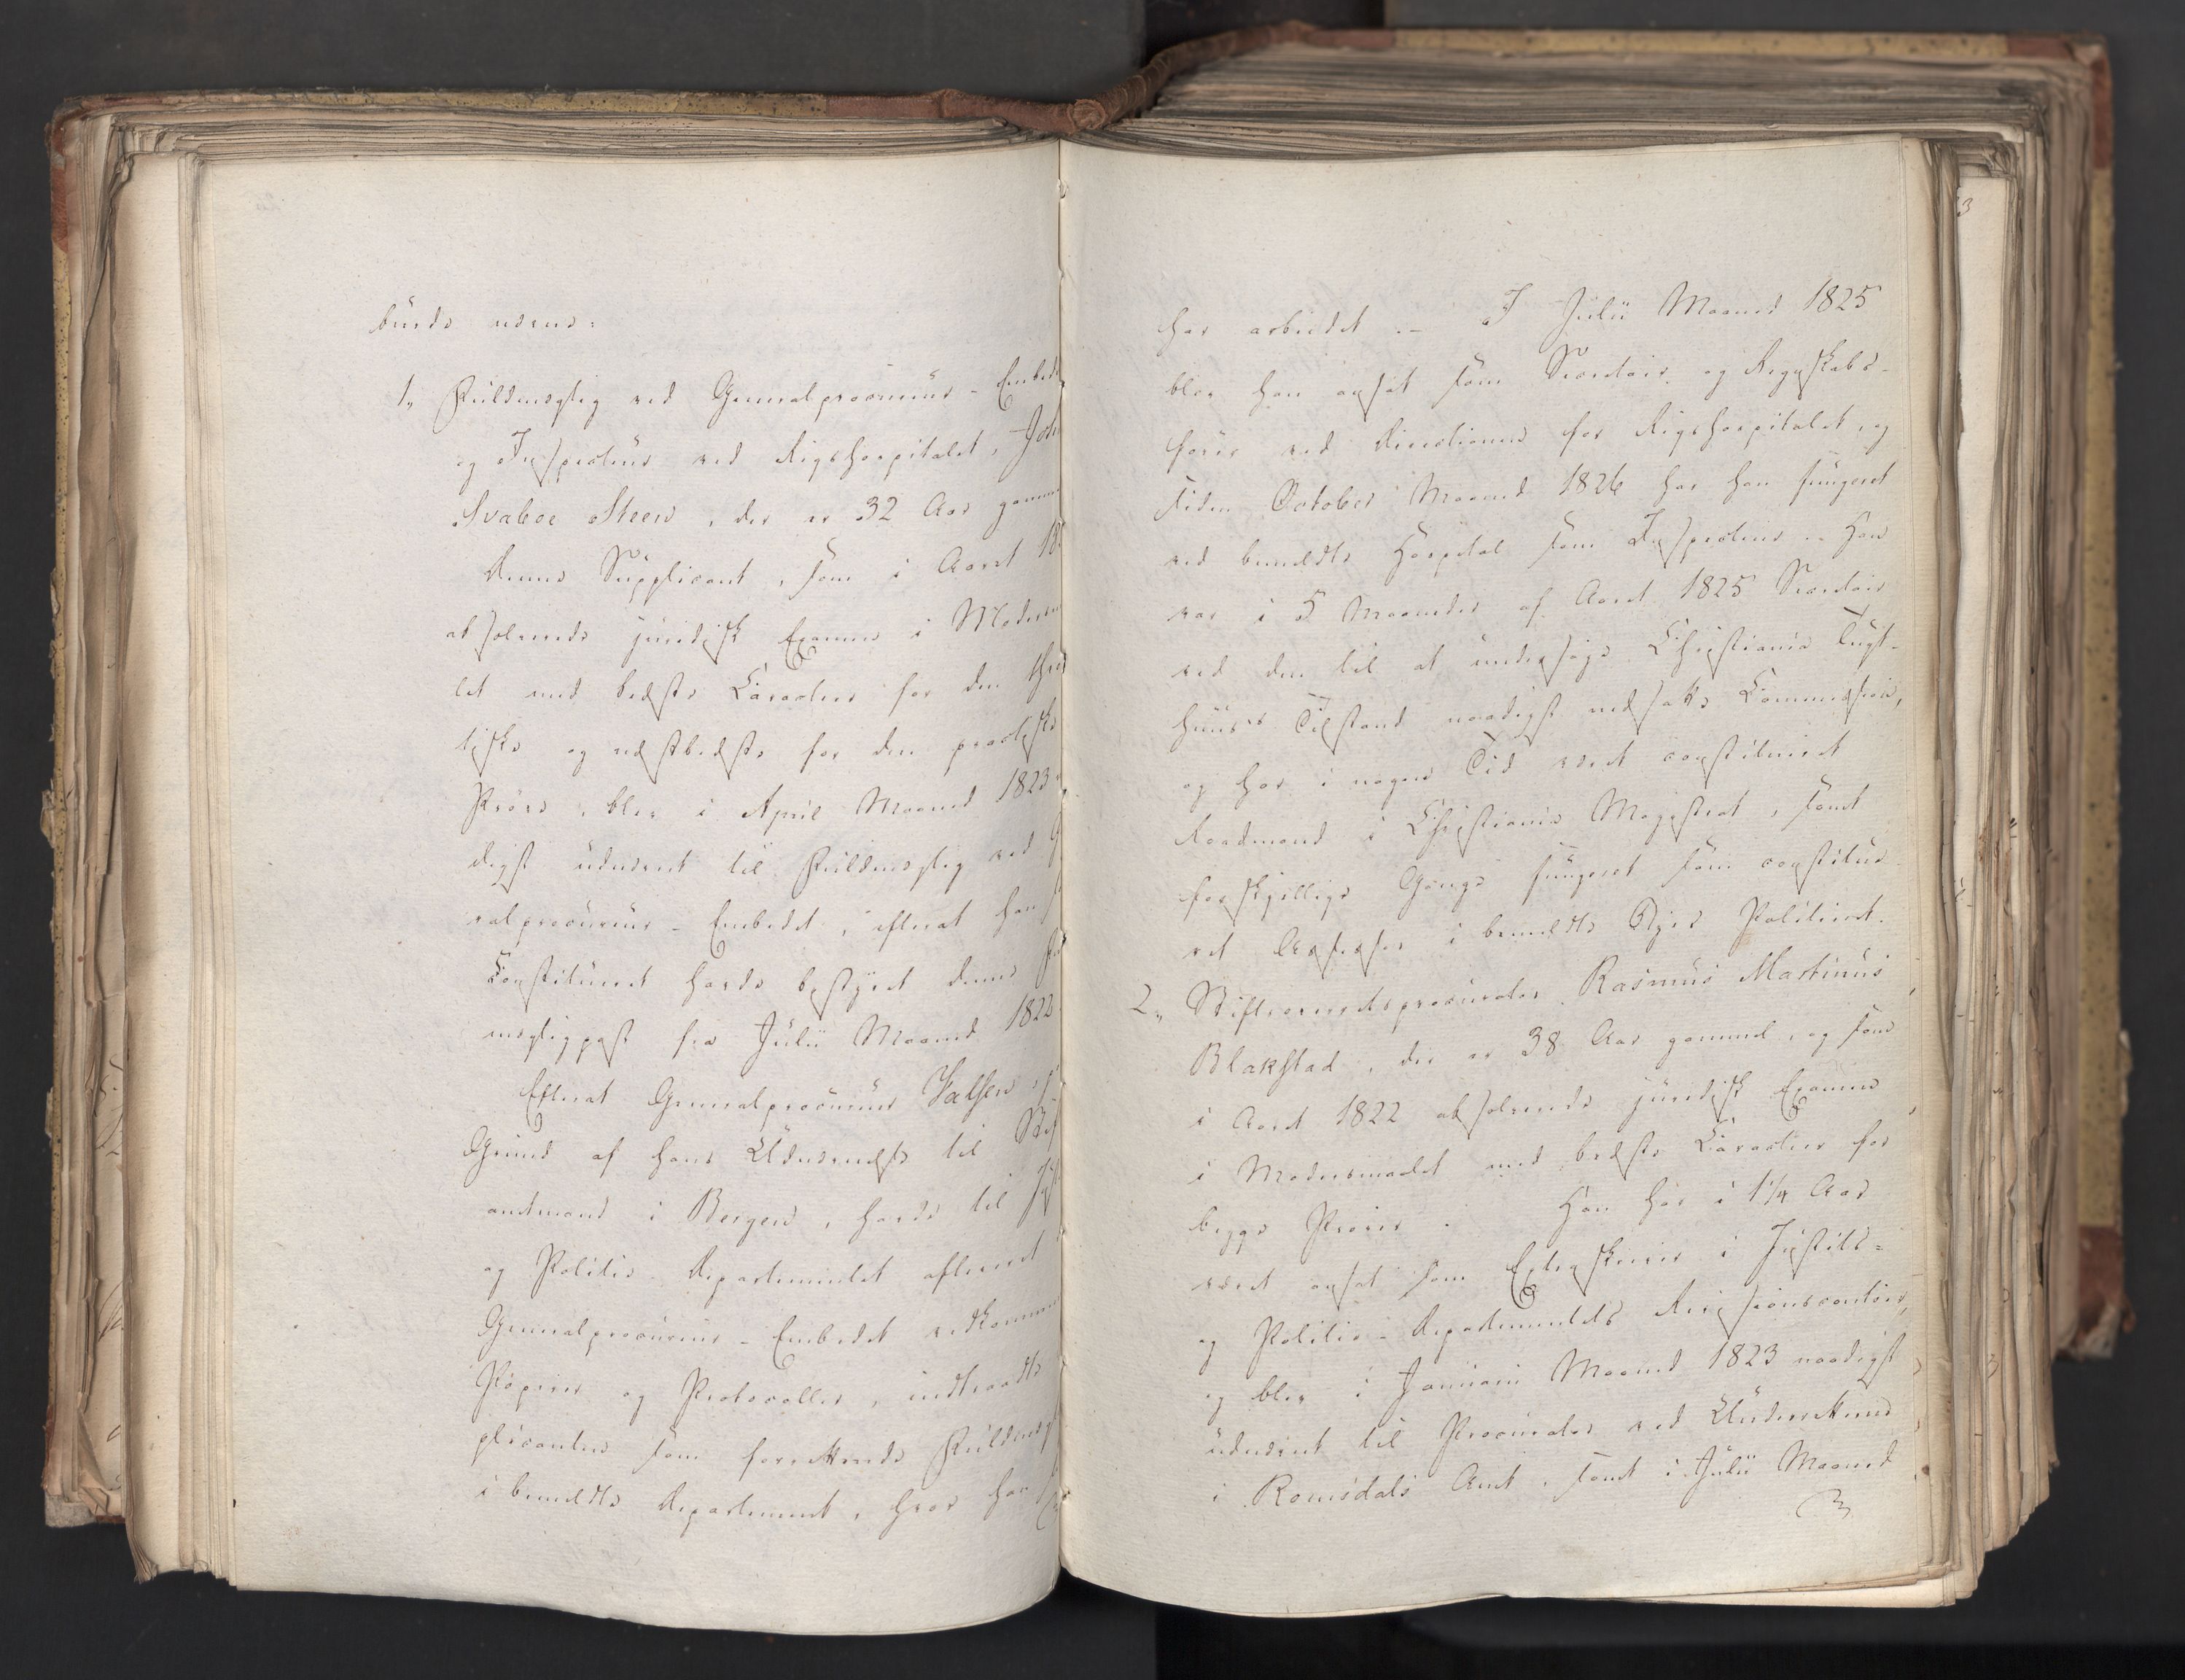 burde nævnes:
1, Fuldmægtig ved Generalprocureur-Embed
og Inspecteur ved Rigshospitalet, Joh
Svaboe Steen, der er 32 Aar gamm
Denne Supplicant, som i Aaret 18
absolverede juridisk Examen i Moders
let med bedste Caracteer for den theo
tiske og næstbedste for den practiske
Prøve, blev i April Maaned 1823
digst udnævnt til Fuldmægtig ved G
ralprocureur-Embedet, efterat han
Constitueret havde bestyret denne Fu
mægtigpost fra Julii Maaned 1822
Efterat Generalprocureur Falsen, p
Grund af hans Udnævnelse til Stif
amtmand i Bergen, havde til Just
og Politie-Departementet afleveret
Generalprocureur-Embedet vedkomm
Papirer og Protocoller, indtraadte
plicanten som forrettende Fuldmæg
i bemeldte Departement, hvor han
har arbeidet.- I Julii Maaned 1825
blev han ansat som Secretair og Regnskabs-
fører ved Directionen for Rigshospitalet, og
siden October Maaned 1826 har han fungeret
ved bemeldte Hospital som Inspecteur.- Han
var i 5 Maaneder af Aaret 1825 Secretair
ved den til at undersøge Christiania Tugt-
huus's Tilstand naadigst nedsatte Commission,
og har i nogen Tid været constitueret
Raadmand i Christiania Magistrat, samt
forskjellige Gange fungeret som constitue-
ret Assessor i bemeldte Byes Politieret.
2, Stiftsoverretsprocurator Rasmus Martinus
Blakstad, der er 38 Aar gammel, og som
i Aaret 1822 absolverede juridisk Examen
i Modersmaalet med bedste Caracteer for
begge Prøver. Han har i 1 1/4 Aar
været ansat som Extraskriver i Justits-
og Politie-Departementets Revisionscontoir,
og blev i Januarii Maaned 1823 naadigst
udnævnt til Procurator ved Underretterne
i Romsdals Amt, samt i Julii Maaned